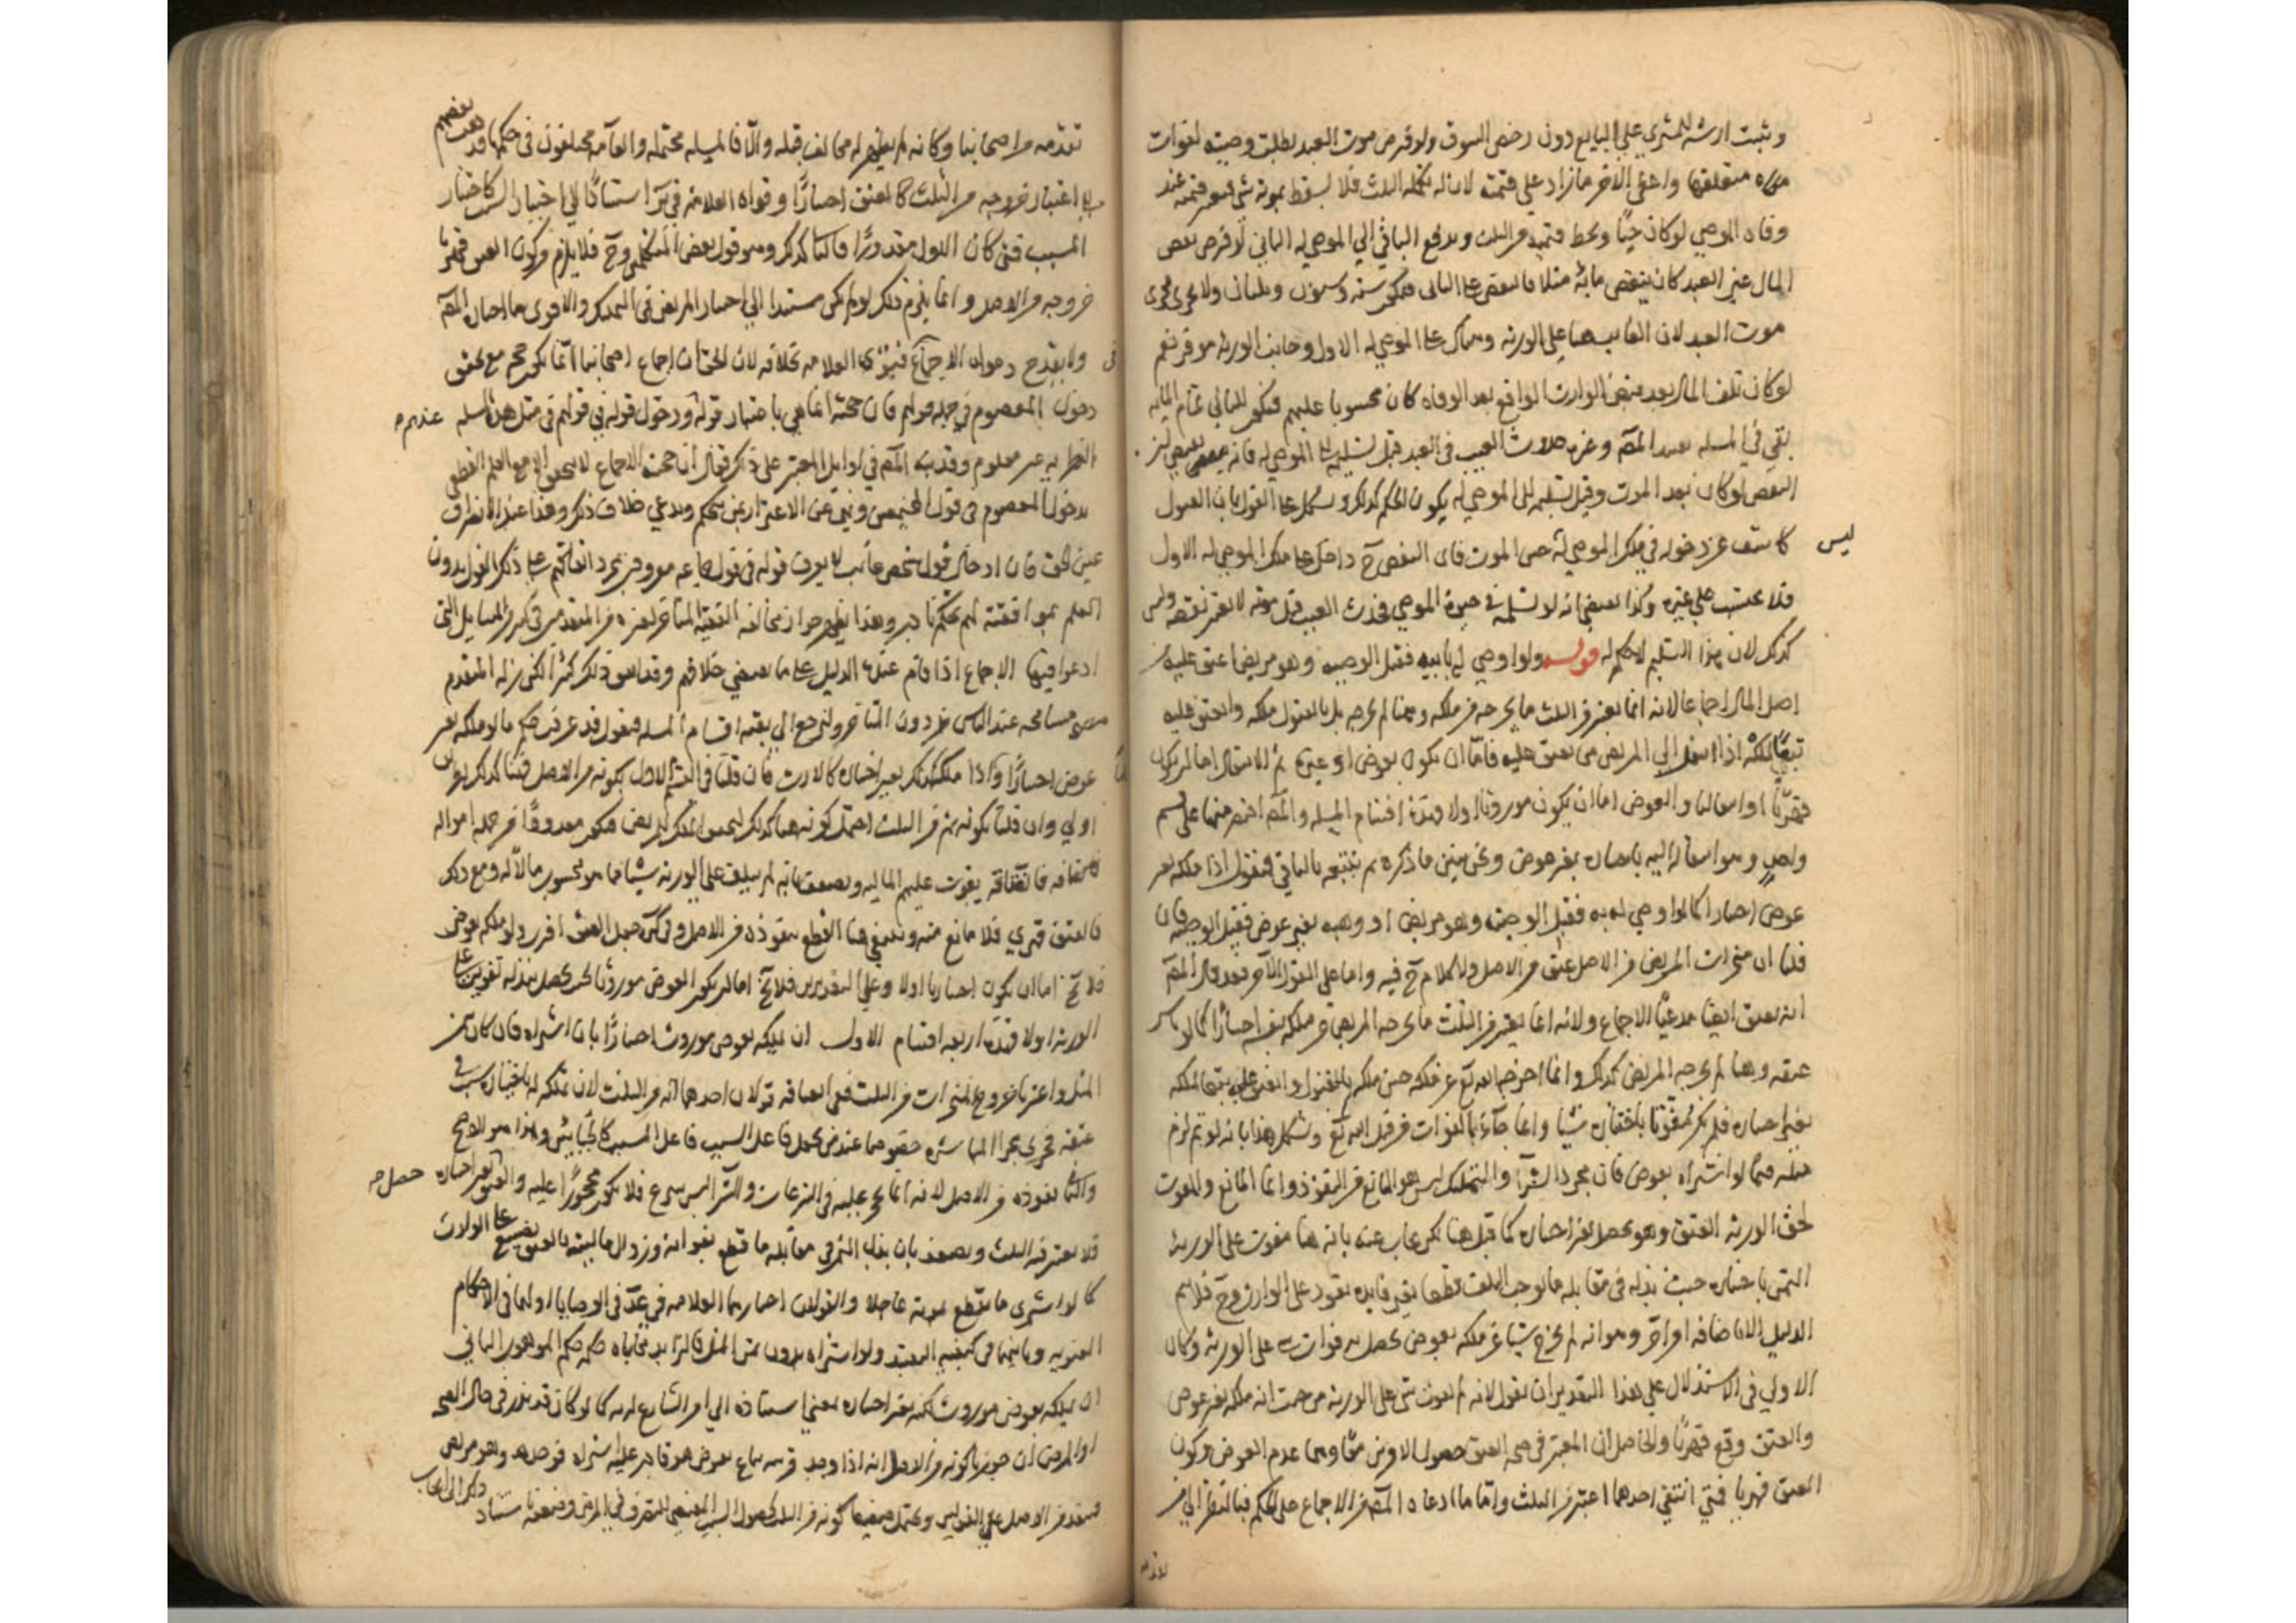 وثبت ارشه للمشتري علي البايع دون رخص السوق ولو فرض موت العبد بطلت وصيته لفوات
متعلقها واعطي الاخر ما زاد علي قيمته لانه تكمله الثلث فلا يسقط بموته شي فيعتبر قيمته عند
وفاه الموصي لو كان حيا ويحط قيمته من الثلث ويدفع الباقي الي الموصي له الثاني لو فرض نقص
المال غير العبد كان ينقص مائة مثلا فالنقص علي الثاني فيكون ستة وستون وثلثان ولا يجري مجري
موت العبد لان الفايت هنا علي الورثه وهناك علي الموصي له الاول وجانب الورثه موفر نعم
لو كان تلف المال بعد قبض الوارث الواقع بعد الوفاه كان محسوبا عليهم فيكون للثاني تمام المايه
بقي في المسله تقييد المصـ وغيره حدوث العيب في العبد قبل تسليمه الي الموصي له فانه يقتضي
النقص لو كان بعد الموت وقبل تسليمه الي الموصي له يكون الحكم كذلك ويشكل علي القول بان القبول
كاشف عن دخوله في ملك الموصي له حين الموت فان النقص ح داخل علي ملك الموصي له الاول
ليس
فلا يحتسب علي غيره وكذا يقتضي انه لو تسلمه في حيوة الموصي فحدث العيب قبل موته لا يعتبر نقصه وليس
كذلك لان هذا التسليم لا حكم له قوله ولو اوصي له بابيه فقبل الوصيه وهو مريض اعتق عليه من
اصل المال اجماعا لانه انما يعتبر من الثلث ما يخرجه من ملكه وهنا لم يخرجه بل بالقبول ملكه وانعتق عليه
تبعا لملكه اذا انتقل الي المريض من يعتق عليه فاما ان يكون بعوض او غيره ثم الانتقال اما ان يكون
قهريا او اختياريا والعوض اما ان يكون موروثا او لا فهذه اقسام المسله والمصـ اقتصر منها علي قسم
واحد وهو انتقاله اليه باختياره بغير عوض ونحن نبين ما ذكره ثم نتبعه بالباقي فنقول اذا ملكه بغير
عوض اختيارا كما لو اوصي له به فقبل الوصيه وهو مريض او وهبه بغير عوض فقبل الوصيه فان
قلنا ان منجزات المريض من الاصل عتق من الاصل ولا كلام ح فيه واما علي القول الآخر فقد قال المصـ
انه يعتق ايضا مدعيا الاجماع ولانه انما يعتبر من الثلث ما يخرجه المريض من ملكه بنفسه اختيارا كما لو باشر
عتقه وهنا لم يخرجه المريض كذلك وانما اخرجه الله تع عن ملكه حين ملكه بالقبول وانعتق عليه تبعا لملكه
بغير اختياره فلم يكن مفوتا باختياره شيا وانما جاء بالفوات من قبل الله تع ويشكل هذا بانه لو تم لزم
مثله فيما لو اشتراه بعوض فان مجرد الشرآ والتملك ليس هو المانع من النفوذ وانما المانع والمفوت
لحق الورثه العتق وهو يحصل بغير اختياره كما قيل هنا لكن يجاب عنه بانه هنا مفوت علي الورثه
الثمن باختياره حيث بذله في مقابله ما يوجب التلف قطعا بغير فايده تعود علي الوارث وح فلا يتم
الدليل الا باضافه امر اخر وهو انه لم يخرج شيا عن ملكه بعوض يحصل به فوات شي علي الورثه وكان
الاولي في الاستدلال علي هذا التقدير ان نقول لانه لم يفوت شي علي الورثه من حيث انه ملكه بغير عوض
والعتق وقع قهريا والحاصل ان المعتبر في صحه العتق حصول الامرين معا وهما عدم العوض وكون
العتق قهريا فمتي انتفي احدهما اعتبر من الثلث واما ما ادعاه المصـ من الاجماع علي الحكم فبالنظر الي من
تقدمه
تقدمه من اصحابنا وكانه لم يظهر له مخالف قبله والا فالمسله محتمله والعامه مختلفون في حكمها وقد ذهب بعضهم
الي اعتبار خروجه من الثلث كالمعتق اختيارا وقواه العلامه في استنادا الي اختيار السبب كاختيار
المسبب فمتي كان الاول مقدورا فالثاني كذلك وهو قول بعض المتكلمين وح فلا يلزم من كون العتق قهريا
خروجه من الاصل وانما يلزم ذلك لو لم يكن مستندا الي اختيار المريض في التملك والاقوي ما اختاره المصـ
ولا يقدح دعواه الاجماع فتوي العلامه بخلافه لان الحق ان اجماع اصحابنا انما يكون حجه مع تحقق
دخول المعصوم في جمله قولهم فان حجته انما هي باعتبار قوله ودخول قوله في قولهم في مثل هذه المسله
عندهم
النظريه غير معلوم وقد نبه المصـ في اوايل المعتبر علي ذلك فقال ان حجيه الاجماع لا يتحقق الا مع العلم القطعي
بدخول المعصوم في قول المجمعين ونهي عن الاغترار بمن يتحكم ويدعي خلاف ذلك وهذا عند الانصاف
عين الحق فان ادخال قول شخص غائب لا يعرف قوله في قول جماعه معروفين بمجرد اتفاقهم علي ذلك القول بدون
العلم بموافقته لهم تحكم بارد وبهذا يظهر جواز مخالفه الفقيه المتاخر لغيره من المتقدمين في كثير من المسايل التي
ادعوا فيها الاجماع اذا قام عنده الدليل علي ما يقتضي خلافهم وقد اتفق ذلك كثيرا لكن زله المتقدم
مسامحه عند الناس دون المتاخر ولنرجع الي بقيه اقسام المسله فنقول قد عرفت حكم ما لو ملكه بغير
عوض اختيارا واذا ملكه كذلك بغير اختياره كالارث فان قلنا في القسم الاول بكونه من الاصل فهنا كذلك بطريق
اولي وان قلنا بكونه ثم من الثلث احتمل كونه هنا كذلك لحصول الملك للمريض فيكون معدودا من جمله امواله
فانعتاقه يفوت عليهم الماليه ويضعف بانه لم يتلف علي الورثه شيا مما هو محسوب مالا له ومع ذلك
فالعتق قهري فلا مانع منه وينبغي هنا القطع بنفوذه من الاصل وفي جعل العتق اقرب ولو ملكه بعوض
فلا يخ اما ان يكون اختياريا او لا وعلي التقديرين فلا يخ اما ان يكون العوض موروثا بحيث يحصل ببذله تفويت علي
الورثه او لا فهذه اربعه اقسام الاول ان يملكه بعوض موروث اختيارا بان اشتراه فان كان بثمن
المثل واعتبرنا خروج المنجزات من الثلث ففي انعتاقه قولان احدهما انه من الثلث لان تملكه له باختياره سبب في
عتقه فجري مجري المباشره خصوصا عند من يجعل فاعل السبب فاعل المسبب كالجبائيين وهذا هو الاصح
والثاني نفوذه من الاصل لانه انما يحجر عليه في التبرعات والشرآ ليس بتبرع فلا يكون محجورا عليه والعتق بغير اختياره
حصل
فلا يعتبر فيه الثلث ويضعف بان بذل الثمن في مقابله ما قطع بفواته وزوال ماليته بالعتق تضييع علي الوارث
كما لو اشتري ما يقطع بموته عاجلا والقولان اختارهما العلامه في عد في الوصايا اولهما في الاحكام
المعنويه وثانيهما في كيفيه التنفيذ ولو اشتراه بدون ثمن المثل فالزايد محاباه حكمه حكم الموهوب الثاني
ان يملكه بعوض موروث لكنه بغير اختياره بمعني استناده الي امر الشارع له به كما لو كان قد نذر في حال الصحه
او المرض ان جوزنا كونه من الاصل انه اذا وجد قريبه يباع بعوض هو قادر عليه اشتراه فوجده وهو مريض
فينفذ من الاصل علي القولين ويحتمل ضعيفا كونه من الثلث لحصول السبب المقتضي للتصرف في المرض وضعفه